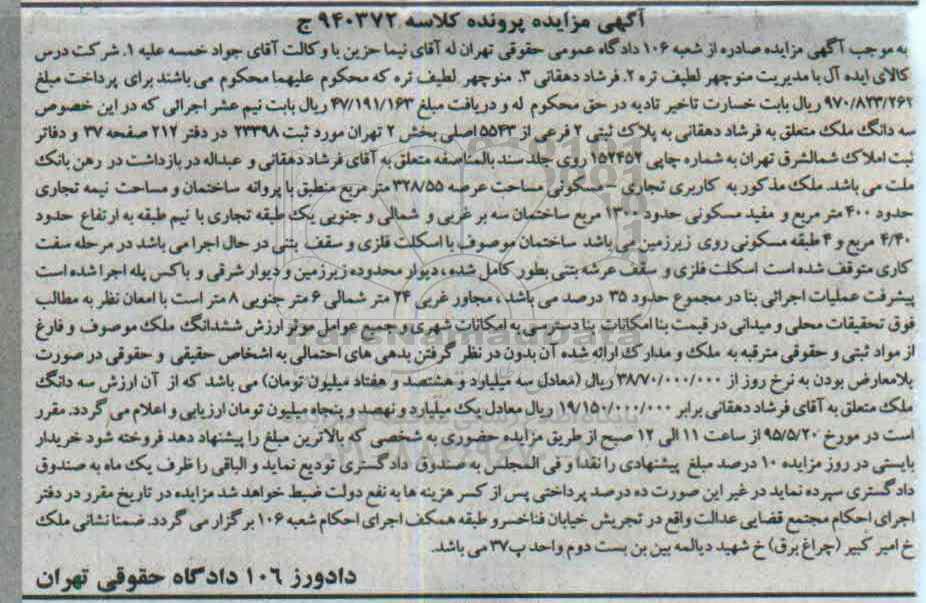 آگهی مزایده پرونده کلاسه ۹۴۰۳۷۲ ج
به موجب آگهی مزایده صادره از شعبه ۱۰۶ دادگاه عمومی حقوقی تهران له آقای نیما حزین با وکالت آقای جواد خمسه علیه ۱. شرکت درس
کالای ایده آل با مدیریت منوچهر لطیف تره ۲. فرشاد دهقانی ۳. منوچهر لطیف تره که محکوم علیهما محکوم می باشند برای پرداخت مبلغ
۹۷۰/۸۲۳/۲۶۲ ریال بابت خسارت تاخیر تادیه در حق محکوم له و دریافت مبلغ ۴۷/۱۹۱/۱۶۳ ریال بابت نیم عشر اجرائی که در این خصوص
سه دانگ ملک متعلق به فرشاد دهقانی به پلاک ثبتی ۲ فرعی از ۵۵۴۳ اصلی بخش ۲ تهران مورد ثبت ۲۳۳۹۸ در دفتر ۲۱۲ صفحه ۳۷ و دفاتر
ثبت املاک شمالشرق تهران به شماره چاپی ۱۵۲۴۵۲ روی جلد سند بالمناصفه متعلق به آقای فرشاد دهقانی و عبداله در بازداشت در رهن بانک
ملت می باشد. ملک مذکور به کاربری تجاری – مسکونی مساحت عرصه ۳۲۸/۵۵ متر مربع منطبق با پروانه ساختمان و مساحت نیمه تجاری
حدود ۴۰۰ متر مربع و مفید مسکونی حدود ۱۳۰۰ مربع ساختمان سه بر غربی و شمالی و جنوبی یک طبقه تجاری با نیم طبقه به ارتفاع حدود
۴/۴۰ مربع و ۴ طبقه مسکونی روی زیرزمین می باشد ساختمان موصوف با اسکلت فلزی و سقف بتنی در حال اجرا می باشد در مرحله سفت
کاری متوقف شده است اسکلت فلزی و سقف عرشه بتنی بطور کامل شده، دیوار محدوده زیرزمین و دیوار شرقی و باکس پله اجرا شده است
پیشرفت عملیات اجرائی بنا در مجموع حدود ۳۵ درصد می باشد، مجاور غربی ۲۴ متر شمالی ۶ متر جنوبی ۸ متر است با امعان نظر به مطالب
فوق تحقیقات محلی و میدانی در قیمت بنا امکانات بنا دسترسی به امکانات شهری و جمیع عوامل موثر ارزش ششدانگ ملک موصوف و فارغ
از مواد ثبتی و حقوقی مترقبه به ملک و مدارک ارائه شده آن بدون در نظر گرفتن بدهی های احتمالی به اشخاص حقیقی و حقوقی در صورت
بلامعارض بودن به نرخ روز از ۳۸/۷۰/۰۰۰/۰۰۰ ریال (معادل سه میلیارد و هشتصد و هفتاد میلیون تومان) می باشد که از آن ارزش سه دانگ
ملک متعلق به آقای فرشاد دهقانی برابر ۱۹/۱۵۰/۰۰۰/۰۰۰ ریال معادل یک میلیارد و نهصد و پنجاه میلیون تومان ارزیابی و اعلام می گردد. مقرر
است در مورخ ۹۵/۵/۲۰ از ساعت ۱۱ الی ۱۲ صبح از طریق مزایده حضوری به شخصی که بالاترین مبلغ را پیشنهاد دهد فروخته شود خریدار
بایستی در روز مزایده ۱۰ درصد مبلغ پیشنهادی را نقدا و فی المجلس به صندوق دادگستری تودیع نماید و الباقی را ظرف یک ماه به صندوق
دادگستری سپرده نماید در غیر این صورت ده درصد پرداختی پس از کسر هزینه ها به نفع دولت ضبط خواهد شد مزایده در تاریخ مقرر در دفتر
اجرای احکام مجتمع قضایی عدالت واقع در تجریش خیابان فناخسرو طبقه همکف اجرای احکام شعبه ۱۰۶ برگزار می گردد. ضمنا نشانی ملک
خ امیر کبیر (چراغ برق) خ شهید دیالمه بین بن بست دوم واحد پ۳۷ می باشد.
دادورز ۱۰۶ دادگاه حقوقی تهران
ParsNamadData